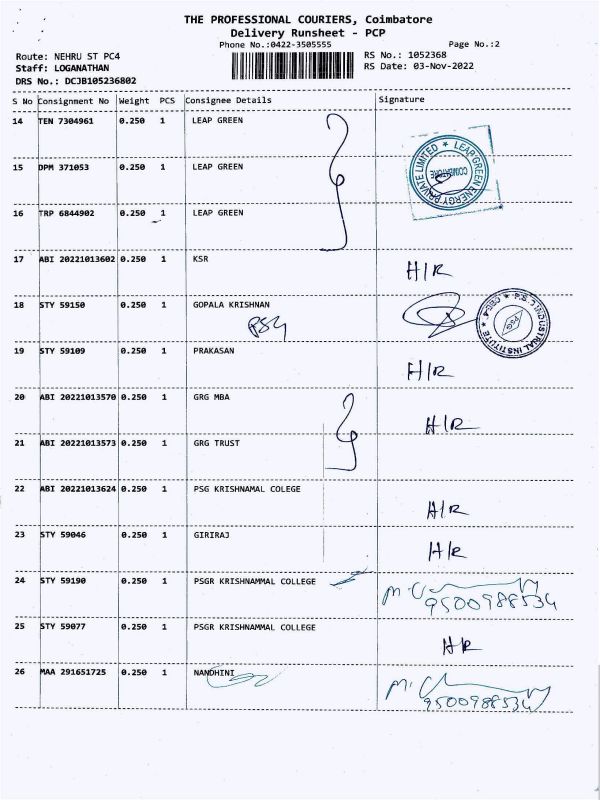 THE PROFESSIONAL COURIERS, Coimbatore
Delivery Runsheet - PCP
Phone No.:0422-3505555
Page No.:2
Route: NEHRU ST PC4
RS No.: 1052368
Staff: LOGANATHAN
RS Date: 03-Nov-2022
DRS No.: DCJB105236802
S No Consignment No Weight PCS Consignee Details Signature
14 TEN 7304961 0.250 1 LEAP GREEN
15 DPM 371053 0.250 1 LEAP GREEN
LEAP GREEN ENERGY PRIVATE LIMITED ★
COIMBATORE
16 TRP 6844902 0.250 1 LEAP GREEN
17 ABI 20221013602 0.250 1 KSR
H/R
18 STY 59150 0.250 1 GOPALA KRISHNAN
PSG
P.S.G INDUSTRIAL INSTITUTE
PSG
19 STY 59109 0.250 1 PRAKASAN
H/R
20 ABI 20221013570 0.250 1 GRG MBA
H/R
21 ABI 20221013573 0.250 1 GRG TRUST
22 ABI 20221013624 0.250 1 PSG KRISHNAMAL COLEGE
H/R
23 STY 59046 0.250 1 GIRIRAJ
H/R
24 STY 59190 0.250 1 PSGR KRISHNAMMAL COLLEGE
9500988534
25 STY 59077 0.250 1 PSGR KRISHNAMMAL COLLEGE
H/R
26 MAA 291651725 0.250 1 NANDHINI
9500988534